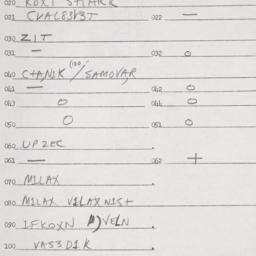 020
021 CVALE3V3T 022 —
030 ZIT
031 — 032 o
040 C+ANIK / SAMOVAR,
041 — 042 o
043 o 044 o
050 o 051 o
060 UPZEC
061 — 062 +
070 MILAX
080 MILAX VILAXNIS+
090 IFKOXN VELN
100 VAS3DIK